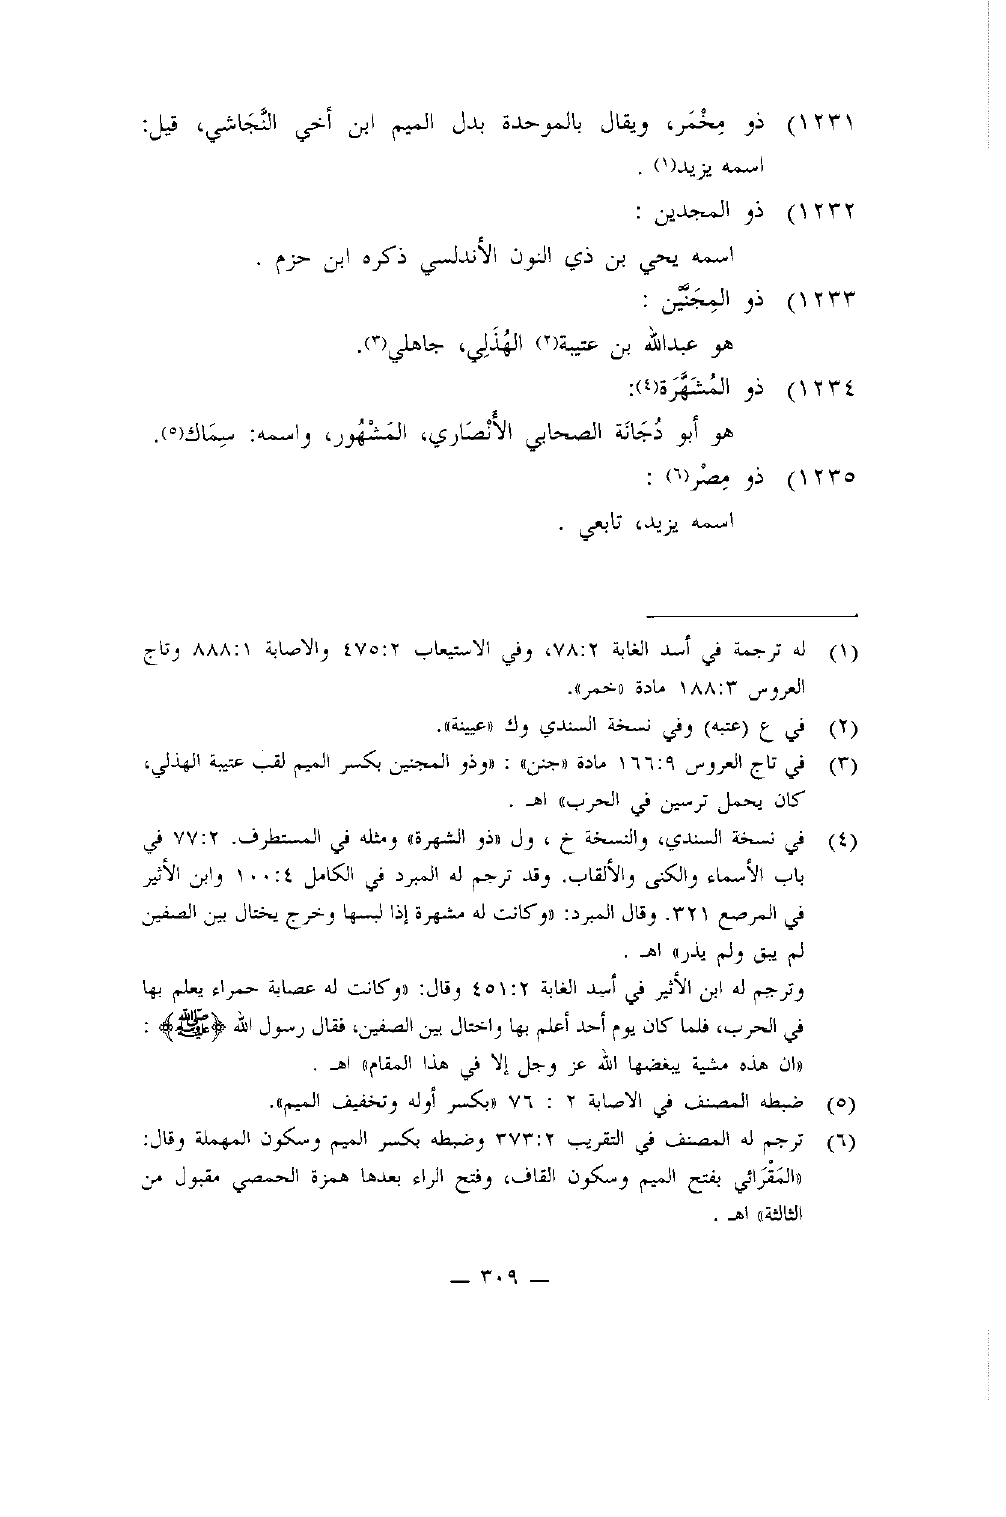 ١٢٣١) ذو مِخْمَر، ويقال بالموحدة بدل الميم ابن أخي النَّجَاشي، قيل:
اسمه يزيد(١) .
١٢٣٢) ذو المجدين :
اسمه يحي بن ذي النون الأندلسي ذكره ابن حزم .
١٢٣٣) ذو المِجَنَّين :
هو عبدالله بن عتيبة(٢) الهُذَلِي، جاهلي(٣).
١٢٣٤) ذو المُشَهَّرَة(٤):
هو أبو دُجَانَة الصحابي الأَنْصَاري، المَشْهُور، واسمه: سِمَاك(٥).
١٢٣٥) ذو مِصْر(٦) :
اسمه يزيد، تابعي .
(١) له ترجمة في أسد الغابة ٧٨:٢، وفي الاستيعاب ٤٧٥:٢ والاصابة ٨٨٨:١ وتاج
العروس ١٨٨:٣ مادة «خمر».
(٢) في ع (عتبه) وفي نسخة السندي وك «عيينة».
(٣) في تاج العروس ١٦٦:٩ مادة «جنن» : «وذو المجنين بكسر الميم لقب عتيبة الهذلي،
كان يحمل ترسين في الحرب» اهـ .
(٤) في نسخة السندي، والنسخة خ ، ول «ذو الشهرة» ومثله في المستطرف. ٧٧:٢ في
باب الأسماء والكنى والألقاب. وقد ترجم له المبرد في الكامل ١٠٠:٤ وابن الأثير
في المرصع ٣٢١. وقال المبرد: «وكانت له مشهرة إذا لبسها وخرج يختال بين الصفين
لم يبق ولم يذر» اهـ .
وترجم له ابن الأثير في أسد الغابة ٤٥١:٢ وقال: «وكانت له عصابة حمراء يعلم بها
في الحرب، فلما كان يوم أحد أعلم بها واختال بين الصفين، فقال رسول الله ﴿ﷺ﴾ :
«ان هذه مشية يبغضها الله عز وجل إلا في هذا المقام» اهـ .
(٥) ضبطه المصنف في الاصابة ٢ : ٧٦ «بكسر أوله وتخفيف الميم».
(٦) ترجم له المصنف في التقريب ٣٧٣:٢ وضبطه بكسر الميم وسكون المهملة وقال:
«المَقْرَائي بفتح الميم وسكون القاف، وفتح الراء بعدها همزة الحمصي مقبول من
الثالثة» اهـ .
— ٣٠٩ —